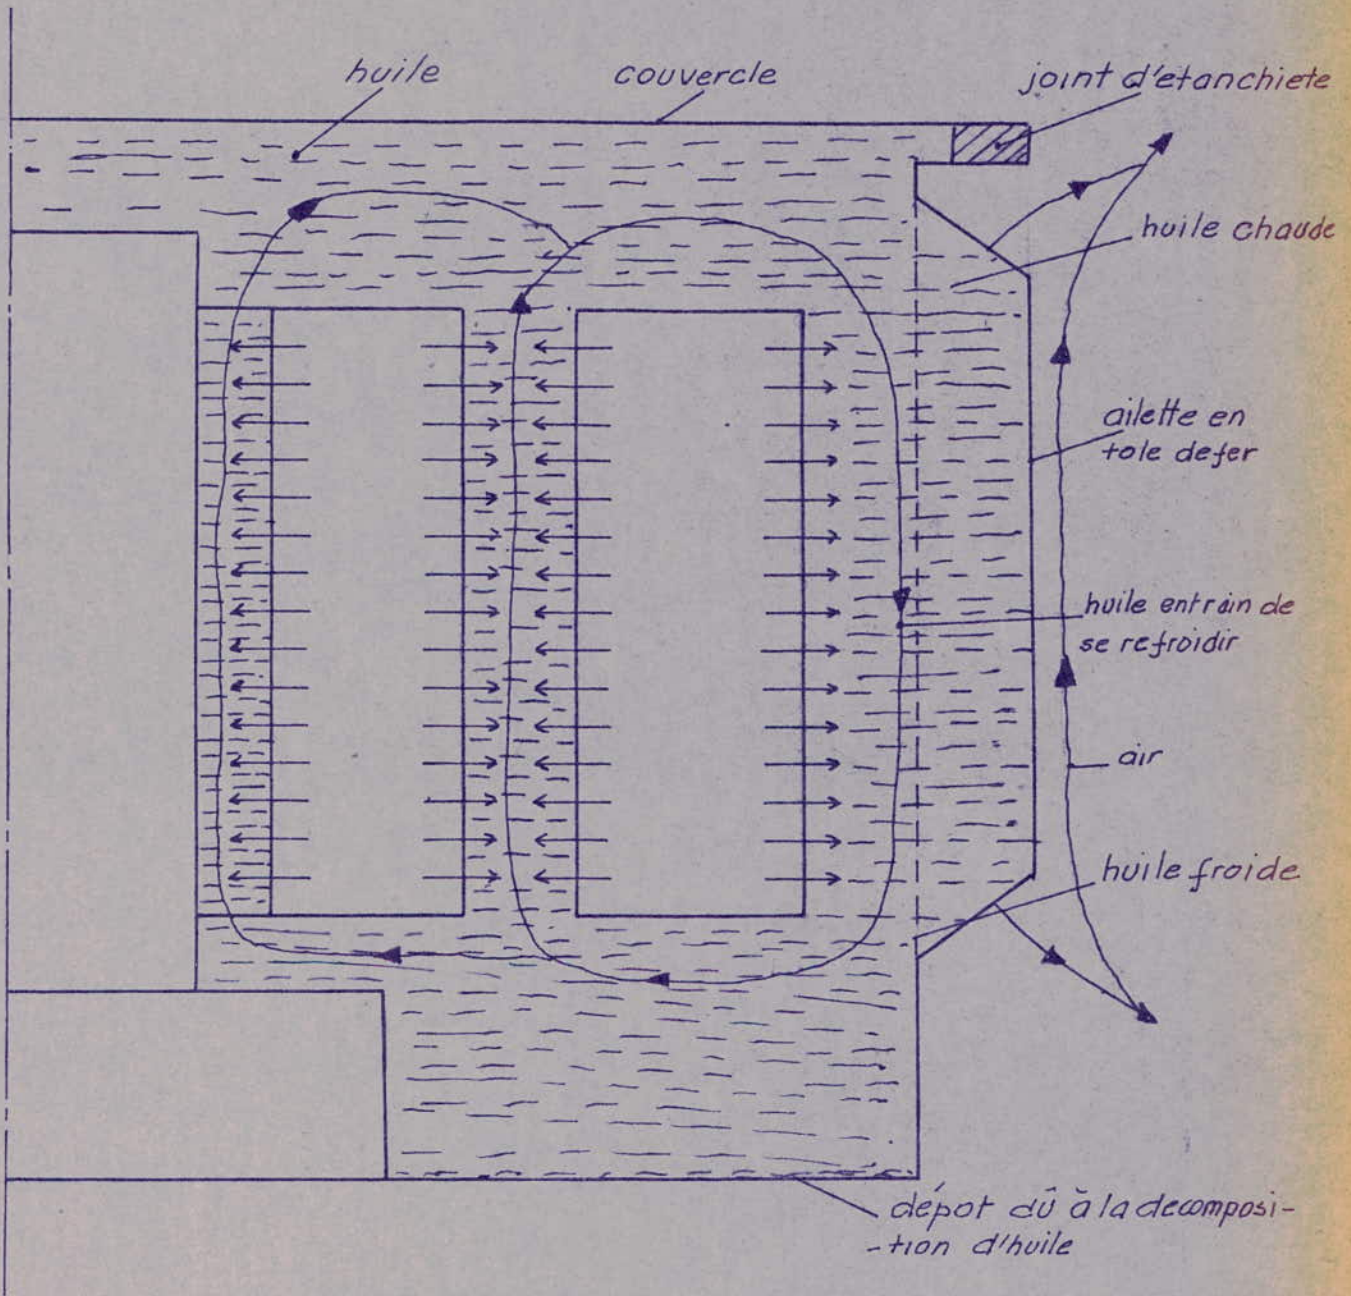 huile
couvercle
joint d'etanchiete
huile chaude
ailette en
tole defer
huile entrain de
se refroidir
air
huile froide
dépot dû à la decomposi-
-tion d'huile